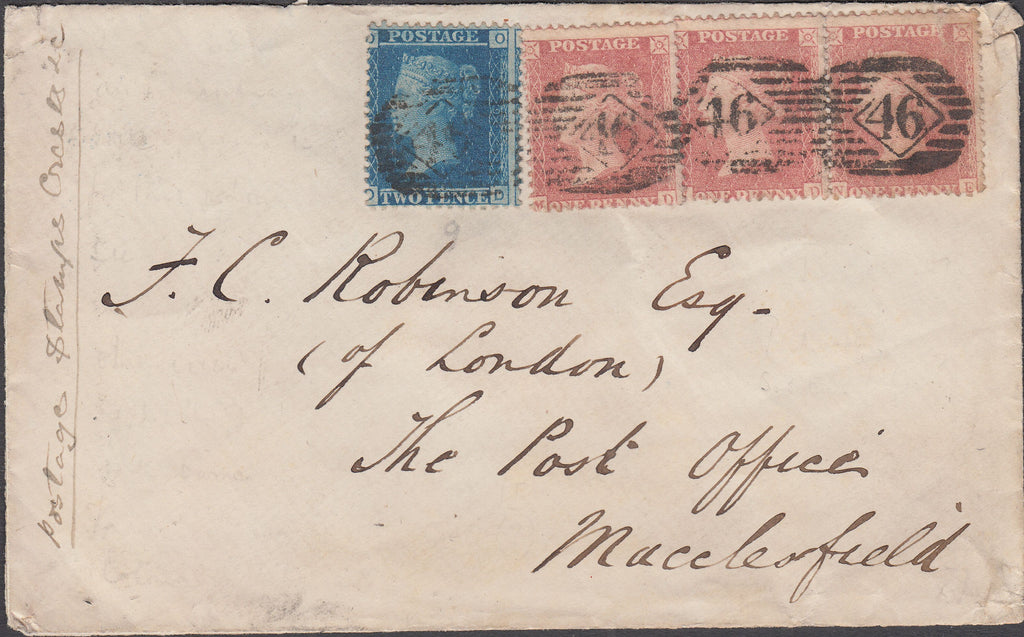 POSTAGE O
TWO PENCE D
POSTAGE
ONE PENNY D
POSTAGE
ONE PENNY D
POSTAGE
ONE PENNY
46
46
46
F. C. Robinson Esq.
(of London)
The Post Office
Macclesfield
Postage Stamps